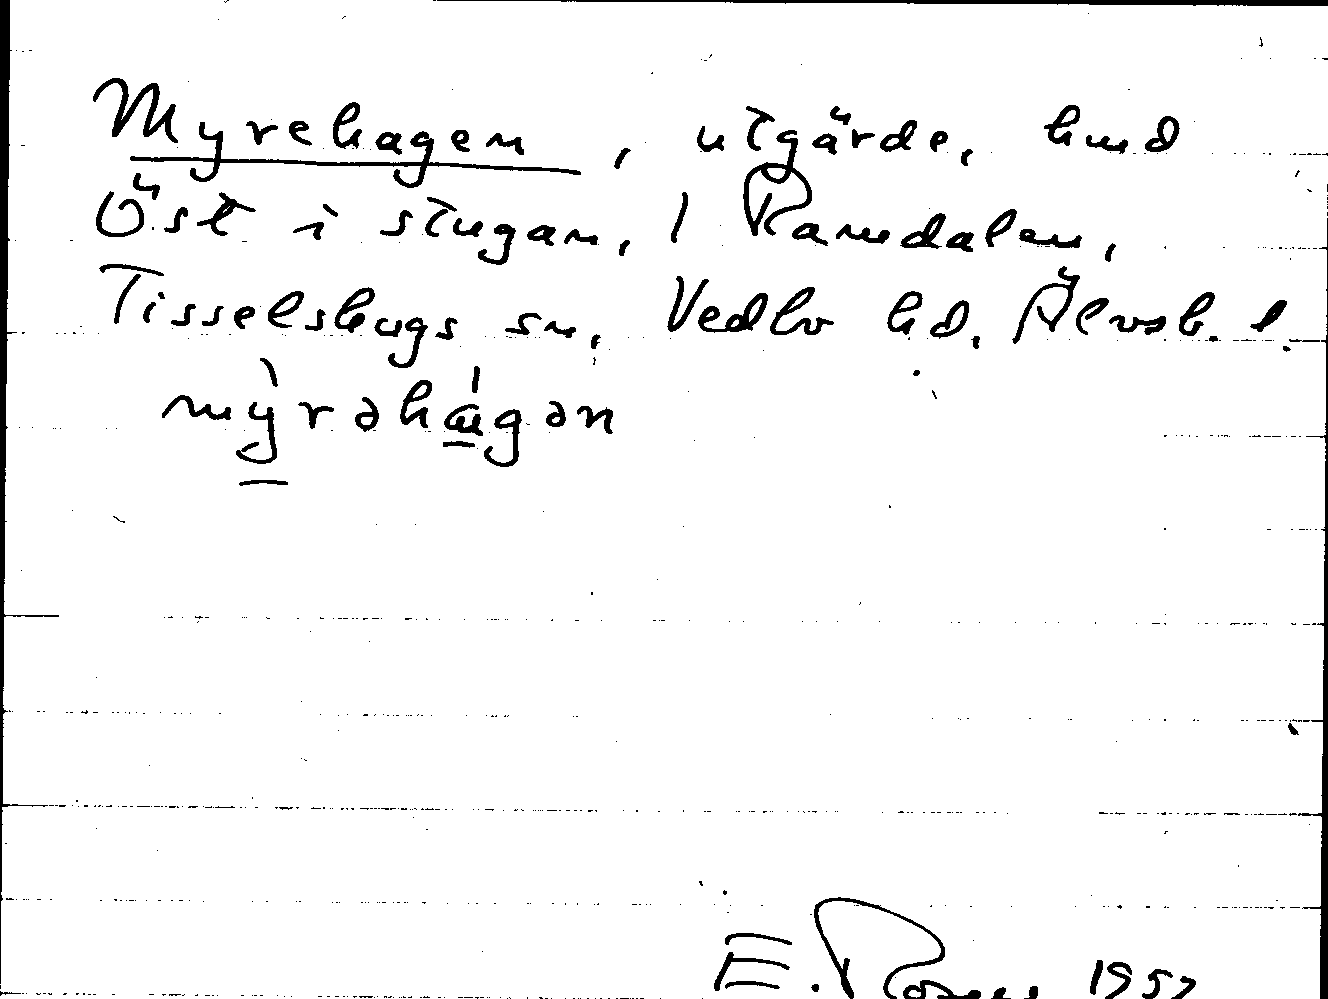 Myrehagen, utgärde, hmd
Öst i stugan, 1 Ramdalen,
Tisselskogs sn, Vedbo hd, Älvsb. l.
mỳ̱rəhá̱gən
E. Rosell 1957